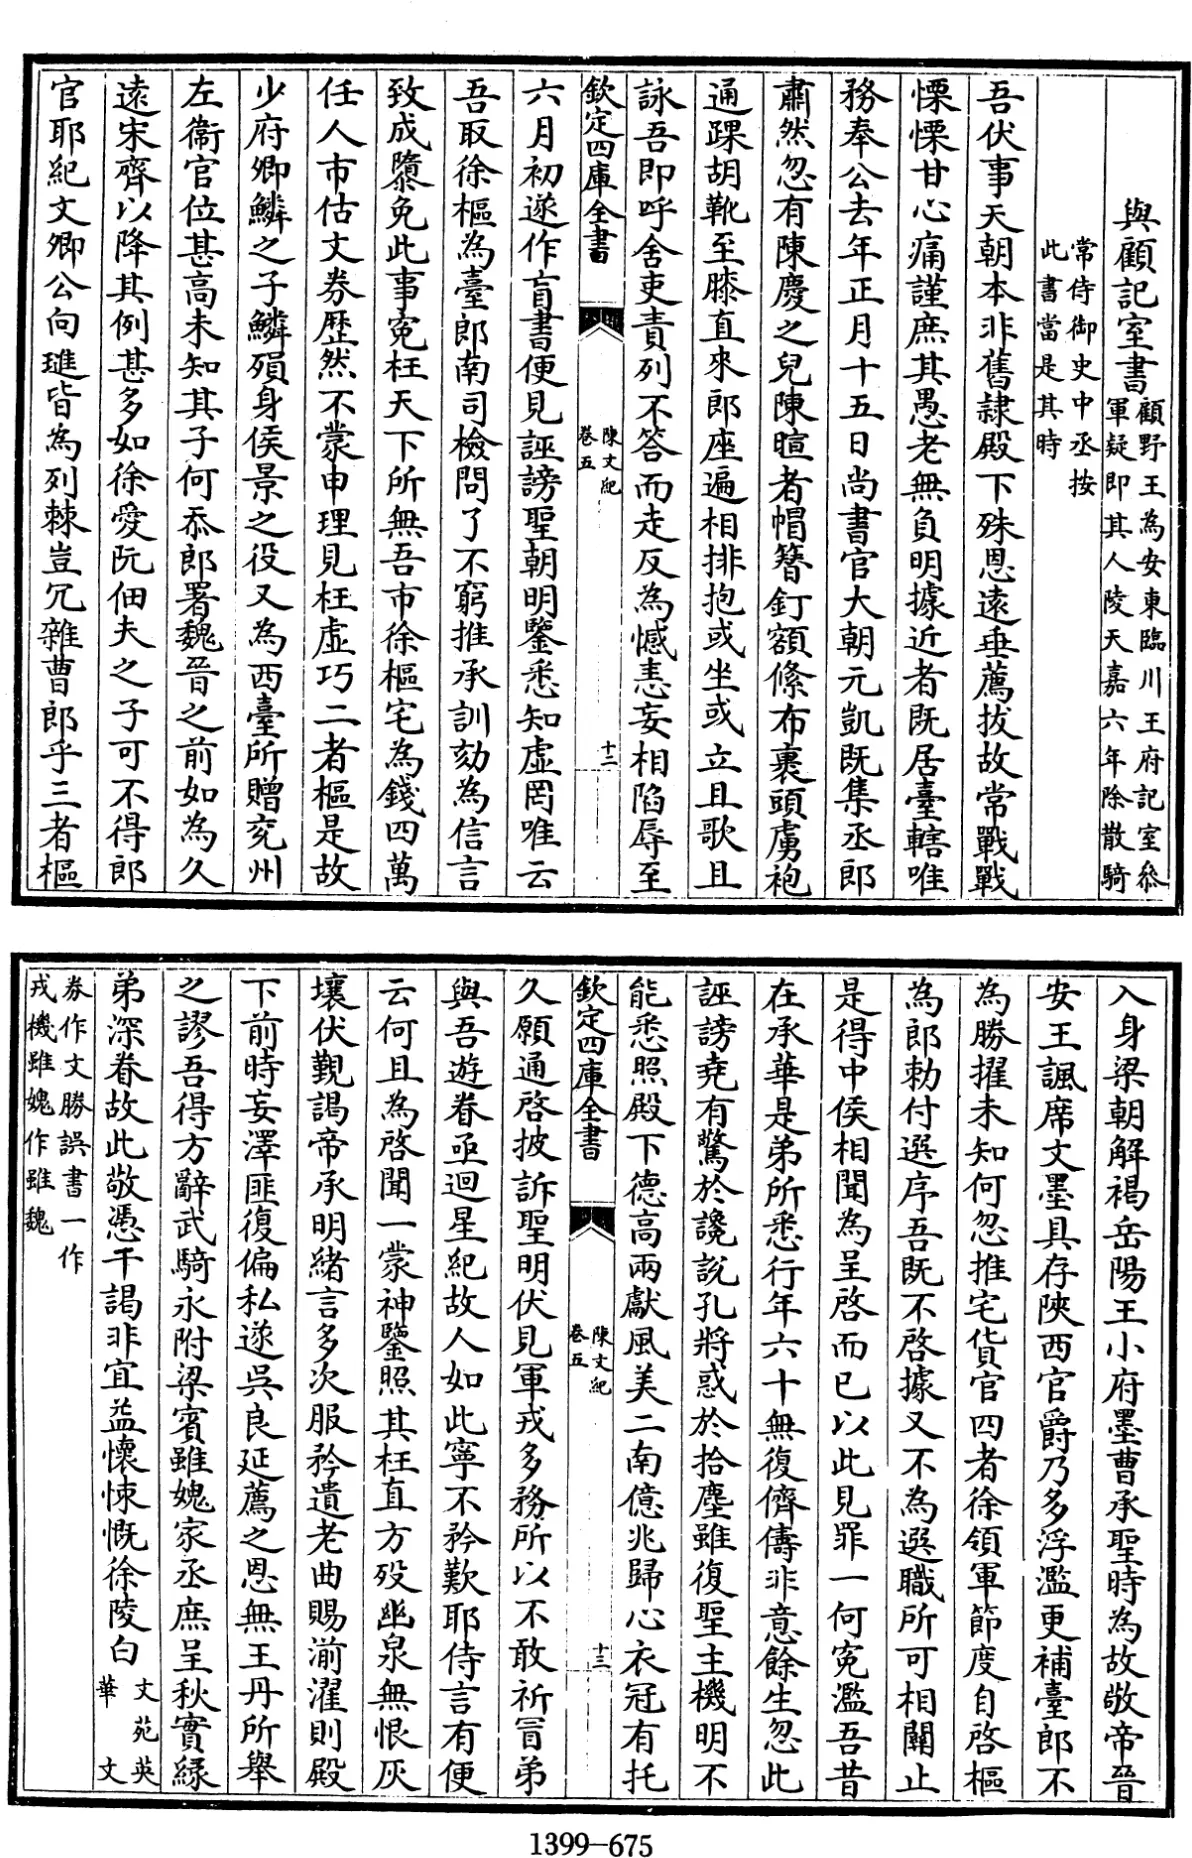 與顧記室書顧野王為安東臨川王府記室叅
軍疑即其人陵天嘉六年除散騎
常侍御史中丞按
此書當是其時
吾伏事天朝本非舊隷殿下殊恩遠垂薦拔故常戰戰
慄慄甘心痛謹庶其愚老無負明據近者既居臺轄唯
務奉公去年正月十五日尚書官大朝元凱既集丞郎
肅然忽有陳慶之兒陳暄者帽簪釘額絛布裹頭虜袍
通踝胡靴至膝直來郎座遍相排抱或坐或立且歌且
詠吾即呼舍吏責列不答而走反為憾恚妄相陷辱至
欽定四庫全書
陳文紀
卷五
十二
六月初遂作盲書便見誣謗聖朝明鑒悉知虛罔唯云
吾取徐樞為臺郎南司檢問了不窮推承訓劾為信言
致成隳免此事寃枉天下所無吾市徐樞宅為錢四萬
任人市估文券歴然不蒙申理見枉虛巧二者樞是故
少府卿鱗之子鱗殞身侯景之役又為西臺所贈兗州
左衞官位甚高未知其子何忝郎署魏晉之前如為久
遠宋齊以降其例甚多如徐愛阮佃夫之子可不得郎
官耶紀文卿公向琟皆為列棘豈冗雜曹郎乎三者樞
入身梁朝解褐岳陽王小府墨曹承聖時為故敬帝晉
安王諷席文墨具存陜西官爵乃多浮濫更補臺郎不
為勝擢未知何忽推宅貨官四者徐領軍節度自啓樞
為郎勅付選序吾既不啓據又不為選職所可相關止
是得中侯相聞為呈啓而已以此見罪一何寃濫吾昔
在承華是弟所悉行年六十無復儕儔非意餘生忽此
誣謗堯有驚於讒說孔將惑於拾塵雖復聖主機明不
能悉照殿下德高兩獻風美二南億兆歸心衣冠有托
欽定四庫全書
陳文紀
卷五
十三
久願通啓披訴聖明伏見軍戎多務所以不敢祈冒弟
與吾遊眷亟迴星紀故人如此寧不矜歎耶侍言有便
云何且為啓聞一蒙神鑒照其枉直方歿幽泉無恨灰
壤伏覲謁帝承明緒言多次服矜遺老曲賜湔濯則殿
下前時妄澤匪復偏私遂吳良延薦之恩無王丹所舉
之謬吾得方辭武騎永附梁賓雖媿家丞庶呈秋實緣
弟深眷故此敬憑干謁非宜益懷悚慨徐陵白文苑英
華　文
券作文勝誤書一作
戎機雖媿作雖魏
1399—675